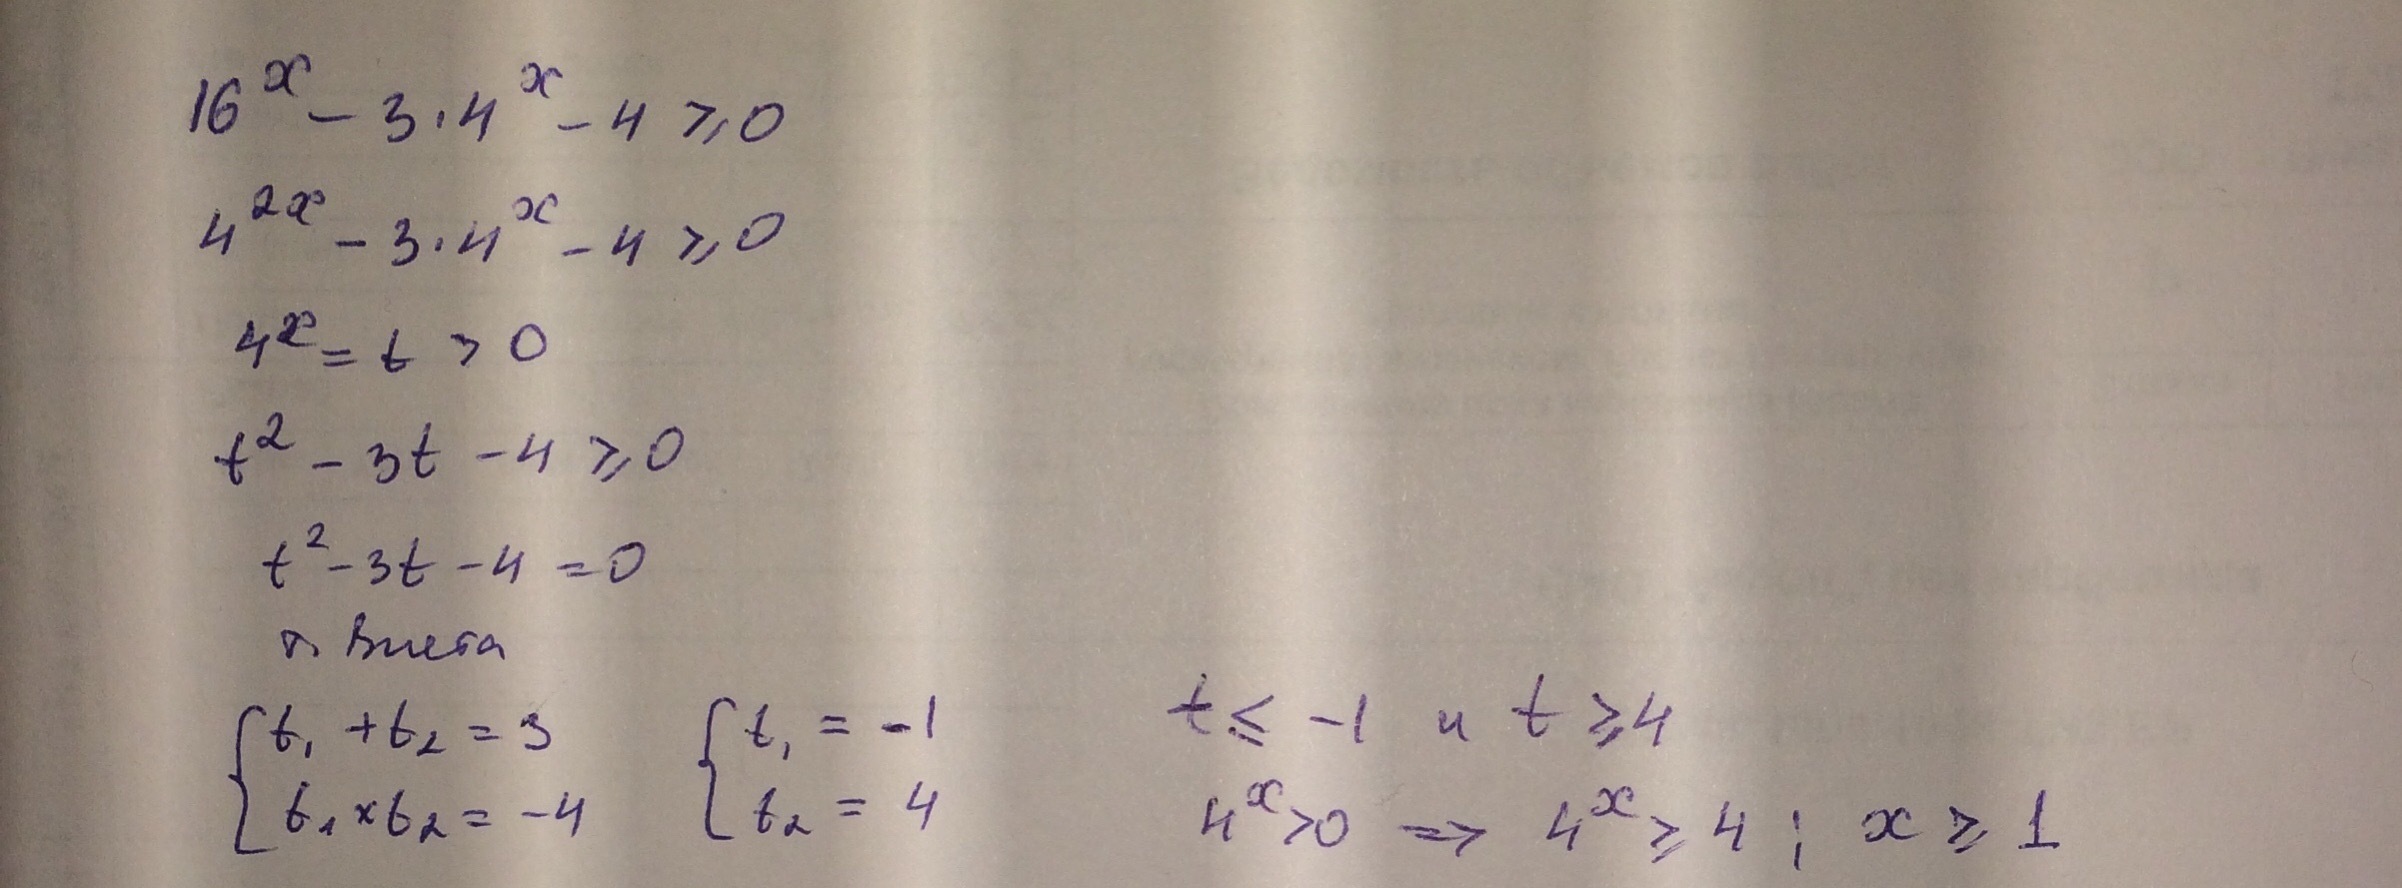 16^x - 3·4^x - 4 ⩾ 0
4^{2x} - 3·4^x - 4 ⩾ 0
4^x = t > 0
t^2 - 3t - 4 ⩾ 0
t^2 - 3t - 4 = 0
т. Виета
{ t_1 + t_2 = 3
t_1 × t_2 = -4
{ t_1 = -1
t_2 = 4
t ≤ -1 и t ⩾ 4
4^x > 0 => 4^x ⩾ 4 ; x ⩾ 1